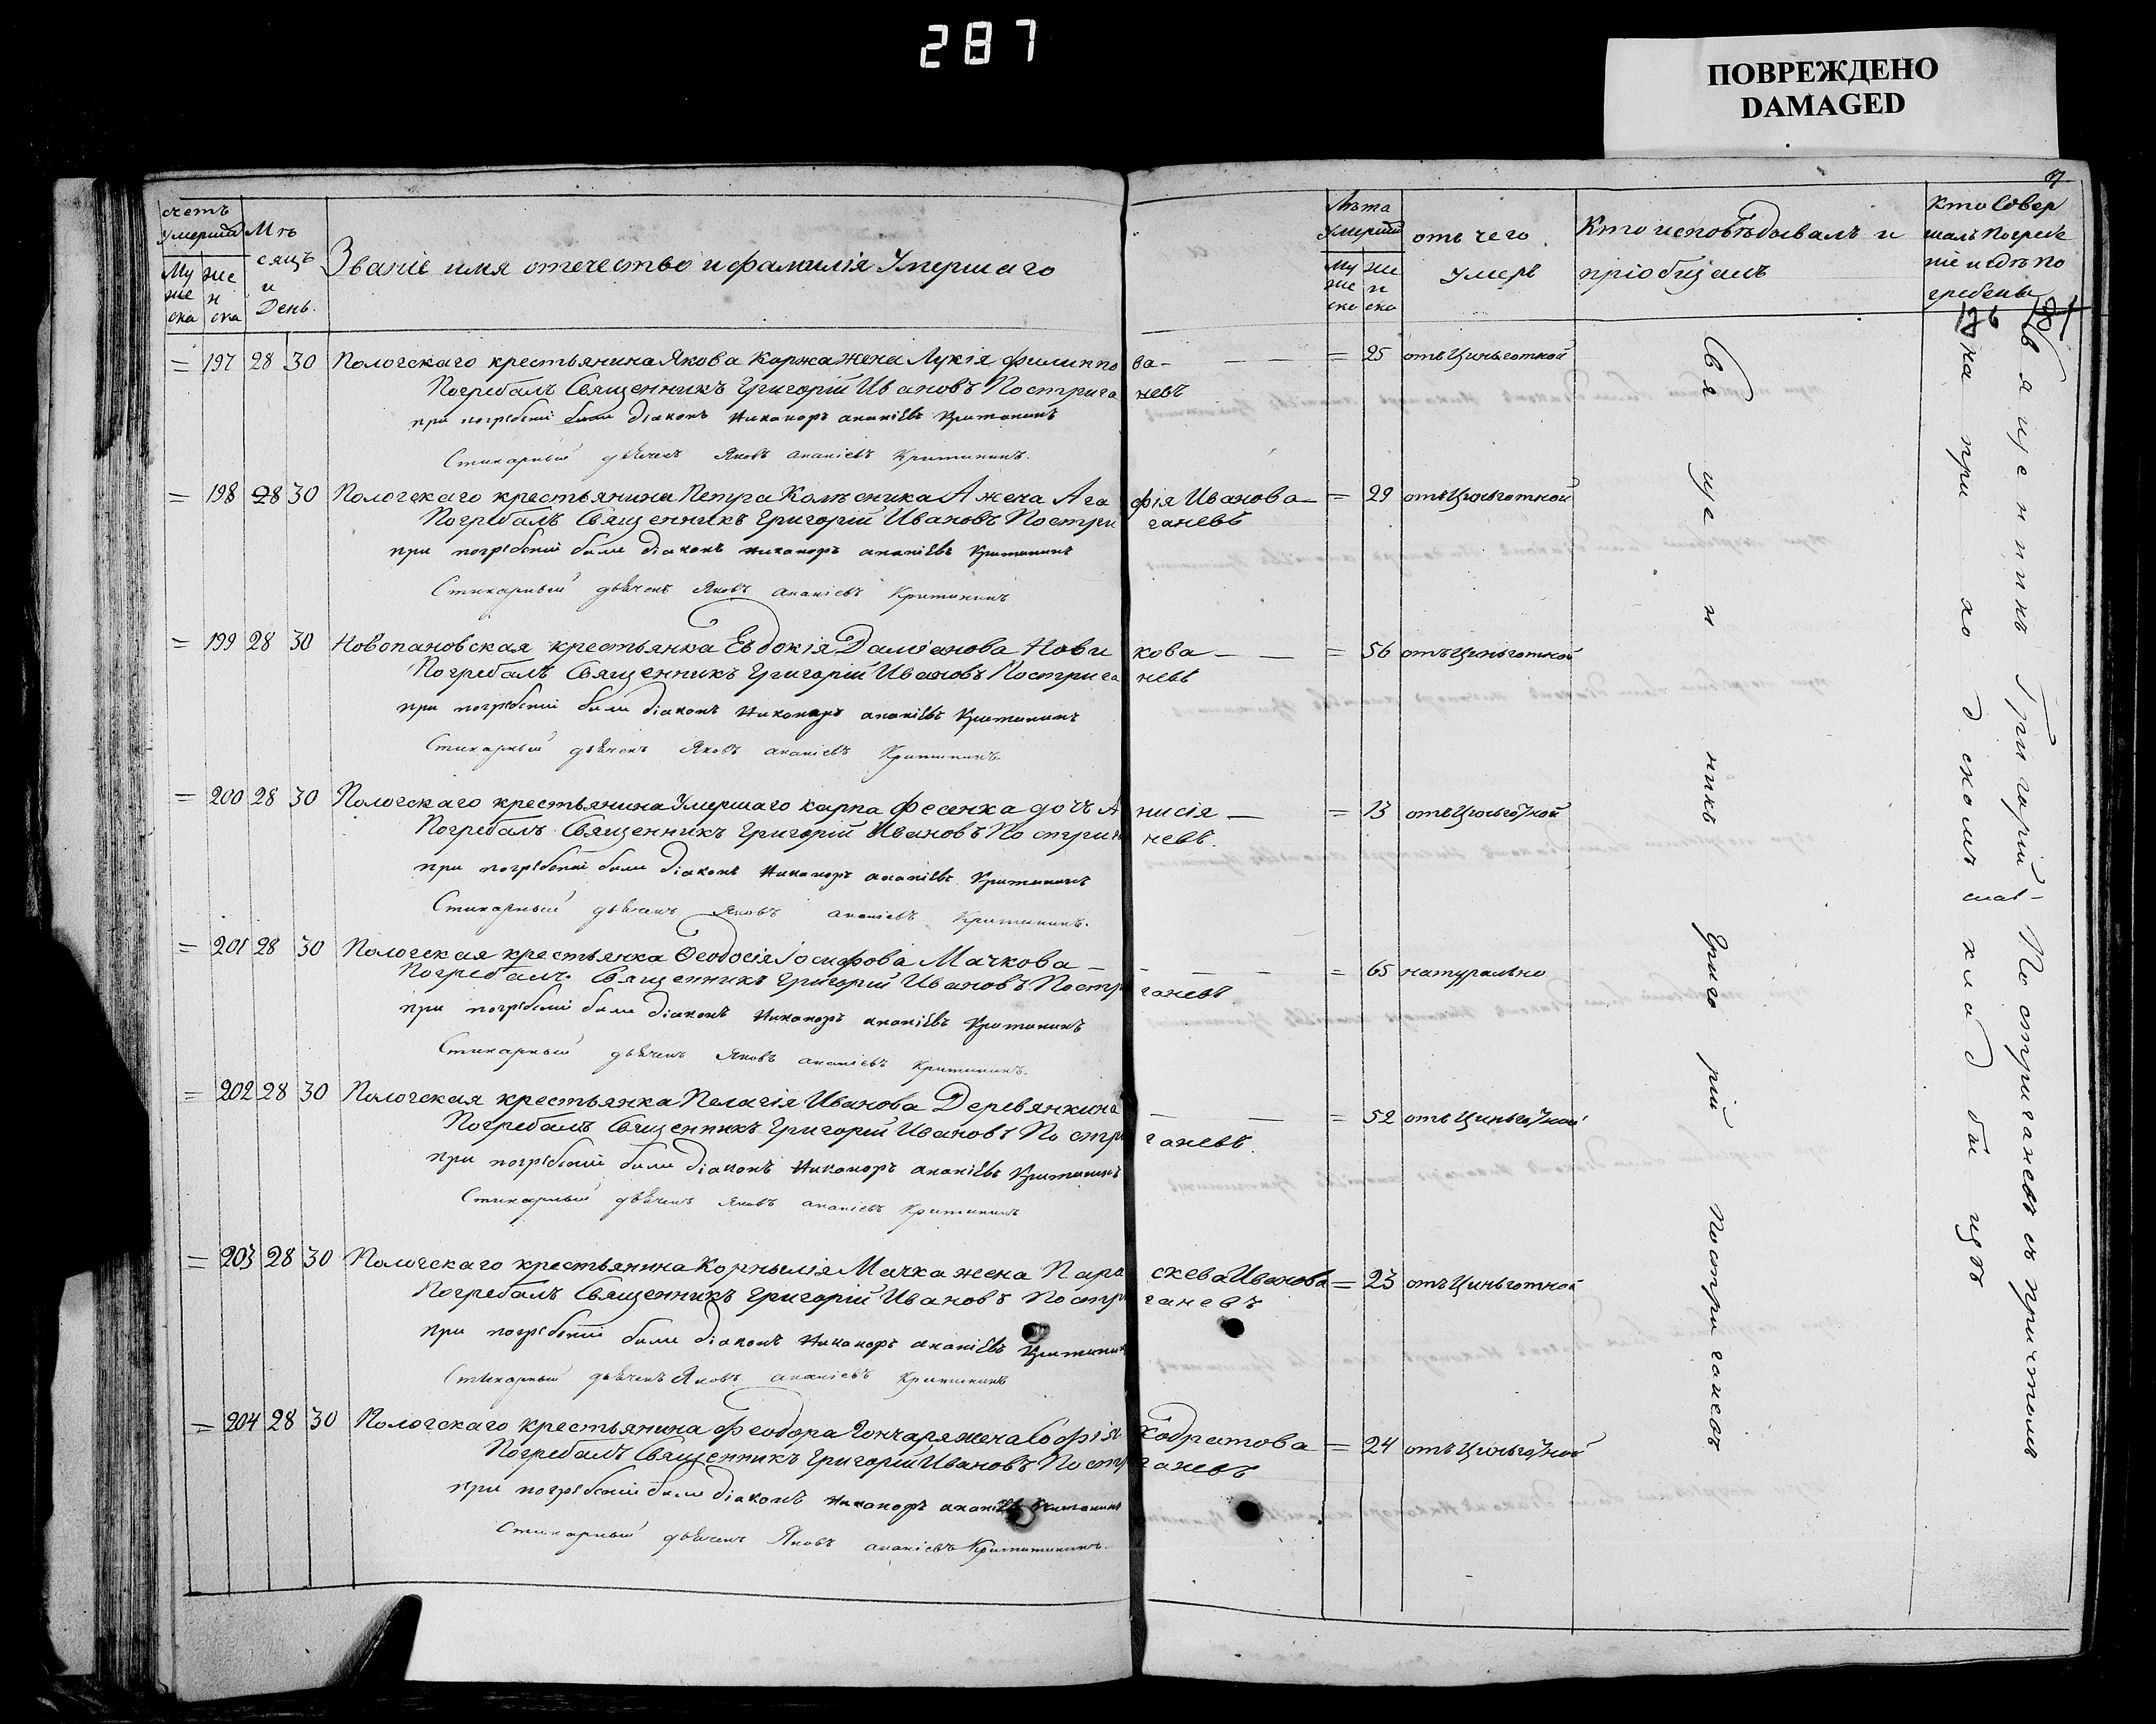 287
ПОВРЕЖДЕНО
DAMAGED
счетъ Умерши
Муже ска
Жен ска
Мѣсяцъ и День.
Званіе имя отечество и фамилія Умершаго
Лѣта Умерши
Муже ско
Жен ско
отъ чего Умеръ
Кто исповѣдывалъ и пріобщалъ
Кто Совершалъ Погребеніе и гдѣ Погребены
= 197 28 30 Пологскаго крестьянина Якова Коржа жена Лукія Филиппова — = 25 отъ Цынготной
Погребалъ Священникъ Григорій Ивановъ Постриганевъ
при погребеніи были діаконъ Никаноръ ананіевъ Критининъ
Стихарный дьячекъ Яковъ ананіевъ Критининъ.
= 198 28 30 Пологскаго крестьянина Петра Колѣсника жена Агафія Иванова — = 29 отъ Цынготной
Погребалъ Священникъ Григорій Ивановъ Постриганевъ
при погребеніи были діаконъ Никаноръ ананіевъ Критининъ
Стихарный дьячекъ Яковъ ананіевъ Критининъ
= 199 28 30 Новопановская крестьянка Евдокія Даміанова Новикова — = 56 отъ Цынготной
Погребалъ Священникъ Григорій Ивановъ Постриганевъ
при погребеніи были діаконъ Никаноръ ананіевъ Критининъ
Стихарный дьячекъ Яковъ ананіевъ Критининъ
= 200 28 30 Пологскаго крестьянина Умершаго карпа Фесенка дочь Анисія — = 13 отъ Цынготной
Погребалъ Священникъ Григорій Ивановъ Постриганевъ.
при погребеніи были діаконъ Никаноръ ананіевъ Критининъ
Стихарный дьячекъ Яковъ ананіевъ Критининъ.
= 201 28 30 Пологская крестьянка Феодосія Іосифова Мачкова — = 65 натурально
Погребалъ Священникъ Григорій Ивановъ Постриганевъ
при погребеніи были діаконъ Никаноръ ананіевъ Критининъ
Стихарный дьячекъ Яковъ ананіевъ Критининъ.
= 202 28 30 Пологская крестьянка Пелагія Иванова Деревянкина — = 52 отъ Цынготной
Погребалъ Священникъ Григорій Ивановъ Постриганевъ.
при погребеніи были діаконъ Никаноръ ананіевъ Критининъ
Стихарный дьячекъ Яковъ ананіевъ Критининъ
= 203 28 30 Пологскаго крестьянина Корнылія Мачка жена Параскева Иванова = 23 отъ Цынготной
Погребалъ Священникъ Григорій Ивановъ Постриганевъ
при погребеніи были діаконъ Никаноръ ананіевъ Критининъ
Стихарный дьячекъ Яковъ ананіевъ Критининъ
= 204 28 30 Пологскаго крестьянина Феодора Гончаря жена Софія Кодратова = 24 отъ Цынготной
Погребалъ Священникъ Григорій Ивановъ Постриганевъ
при погребеніи были діаконъ Никаноръ ананіевъ Критининъ
Стихарный дьячекъ Яковъ ананіевъ Критининъ.
Священникъ Григорій Постриганевъ
Священникъ Григорій Постриганевъ съ причтомъ
на приходскомъ кладбищѣ